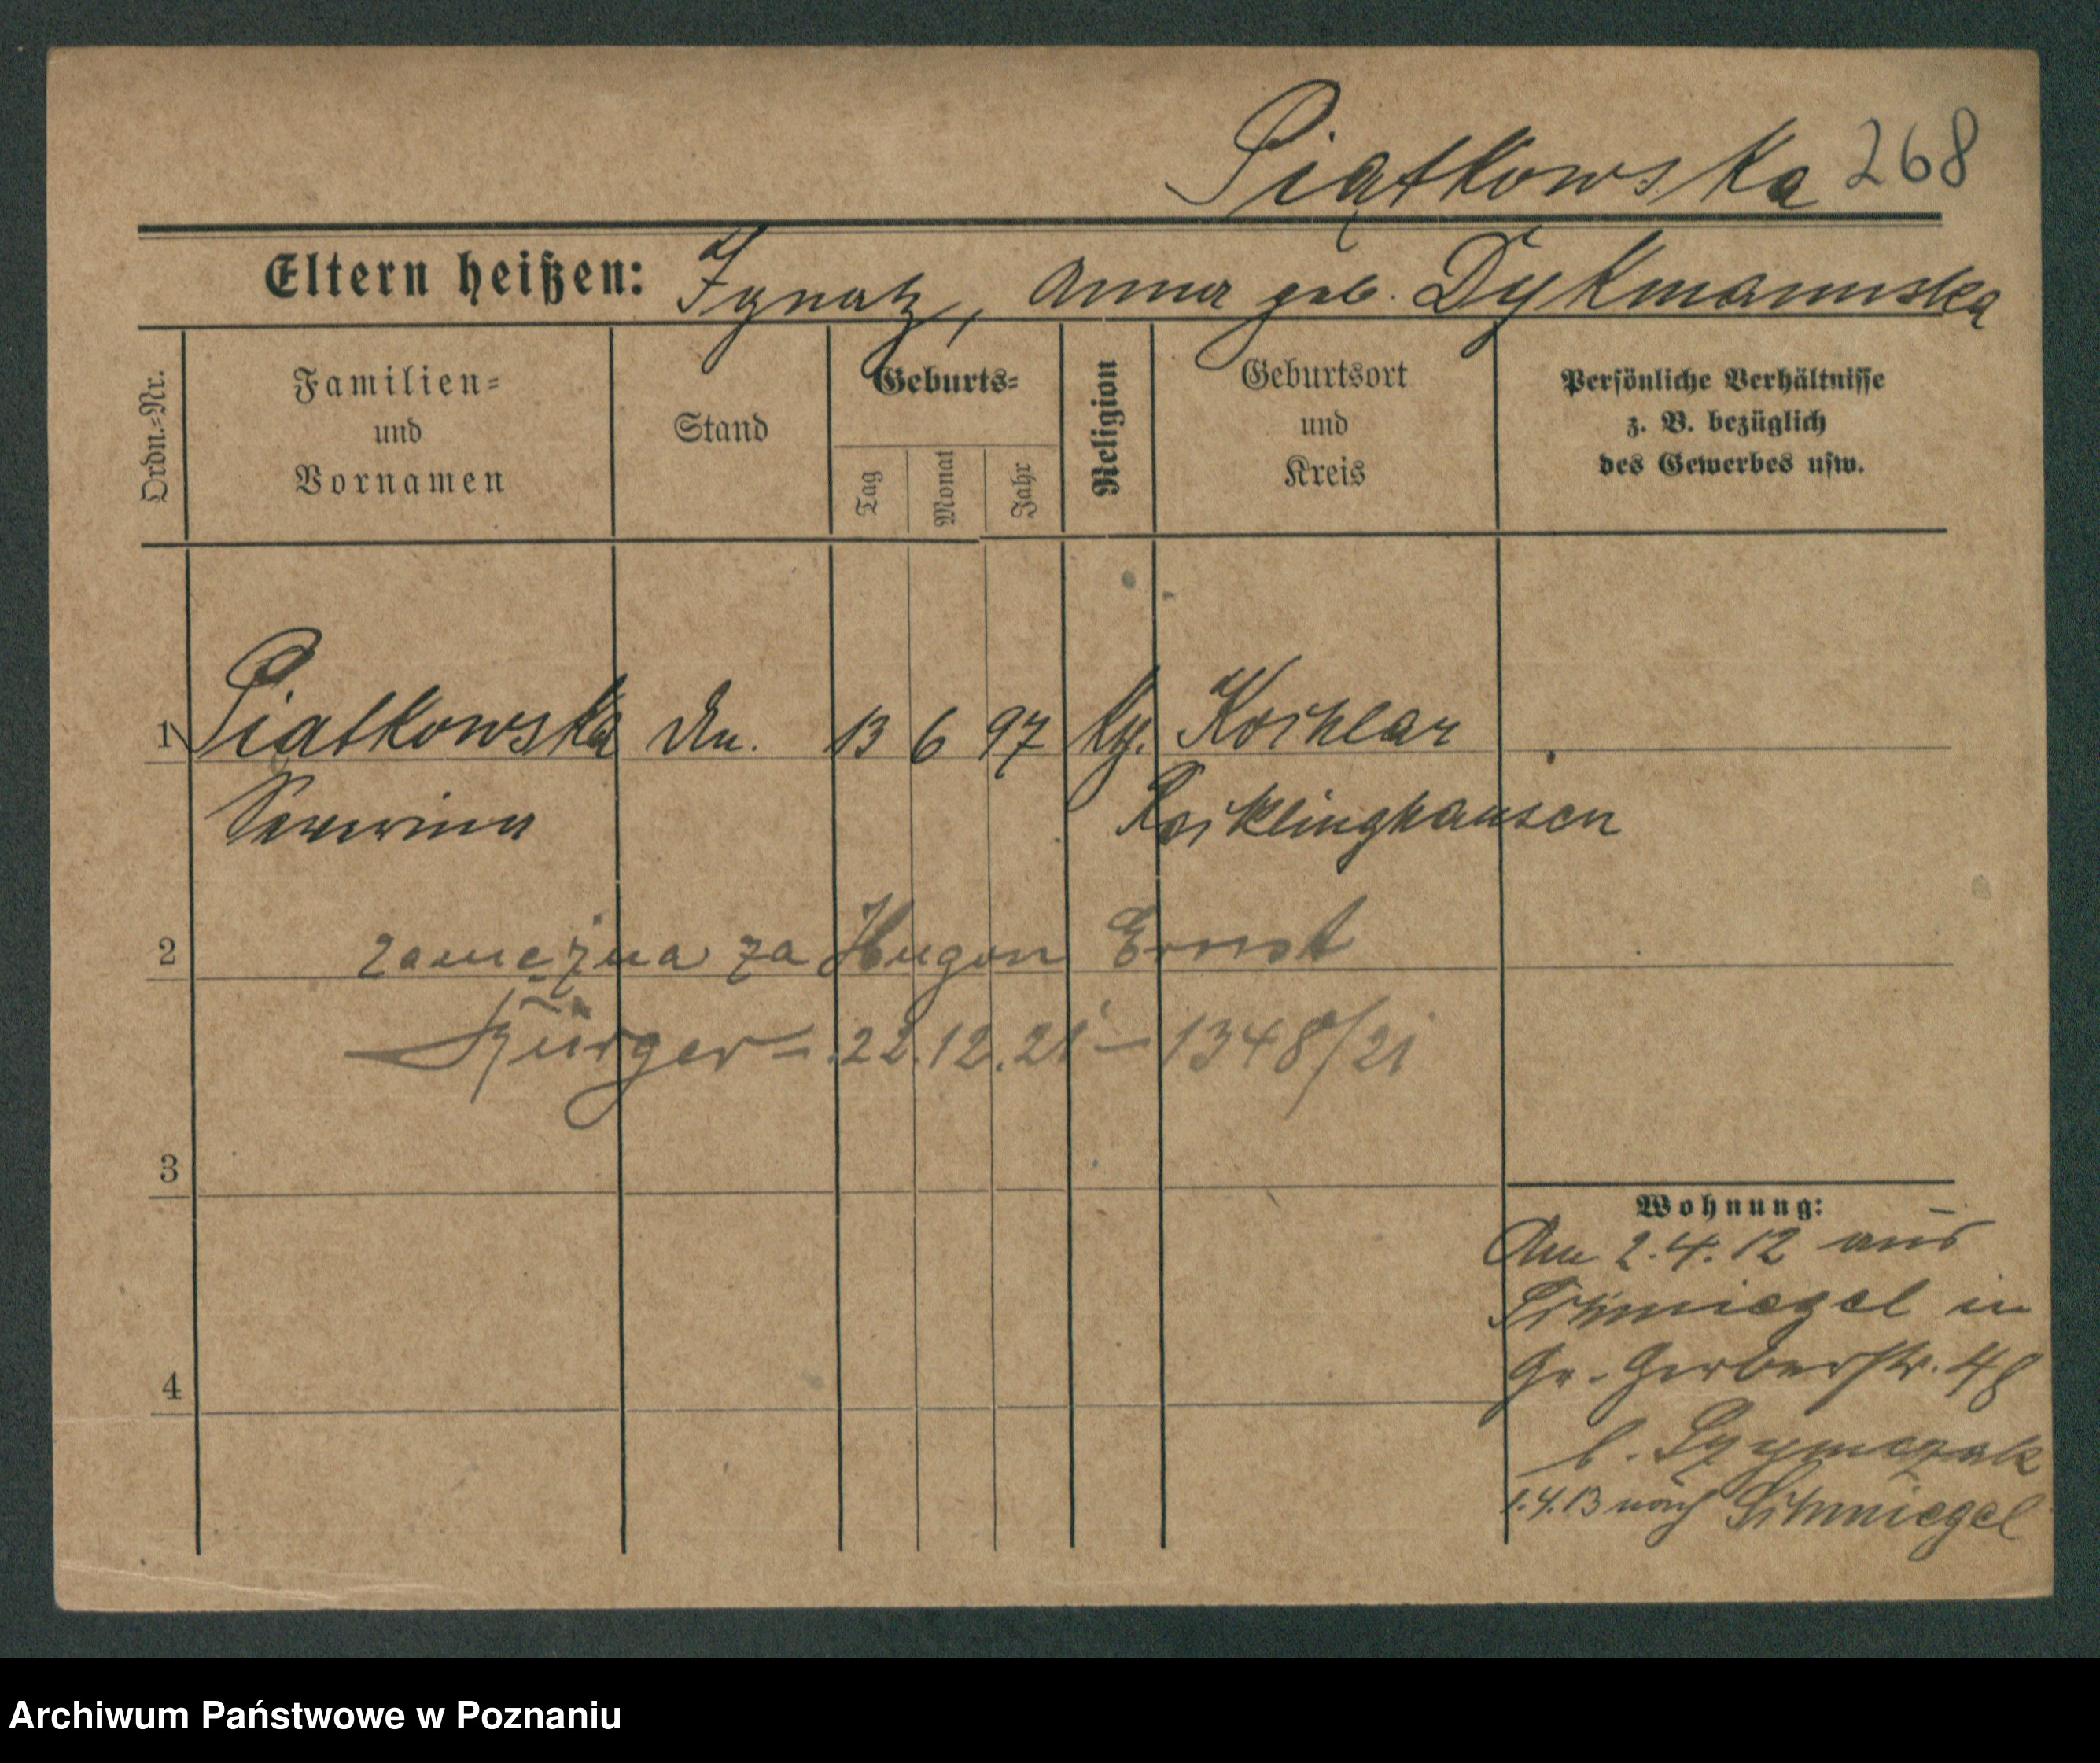 Piątkowska 268
Eltern heißen: Ignatz, Anna geb. Dykmannska
Ordn.-Nr.
Familien-
und
Vornamen
Stand
Geburts-
Tag
Monat
Jahr
Religion
Geburtsort
und
Kreis
Persönliche Verhältnisse
z. B. bezüglich
des Gewerbes usw.
1 Piatkowska 13 6 97
Severina
2 zamężna za Hugon Ernst
22.12.21 – 1348/21
3
Wohnung:
Am 2.4.12 aus
Schmiegel in
4 Gr. Gerberstr. 48
b. Szymczak
1.4.13 nach Schmiegel
Archiwum Państwowe w Poznaniu